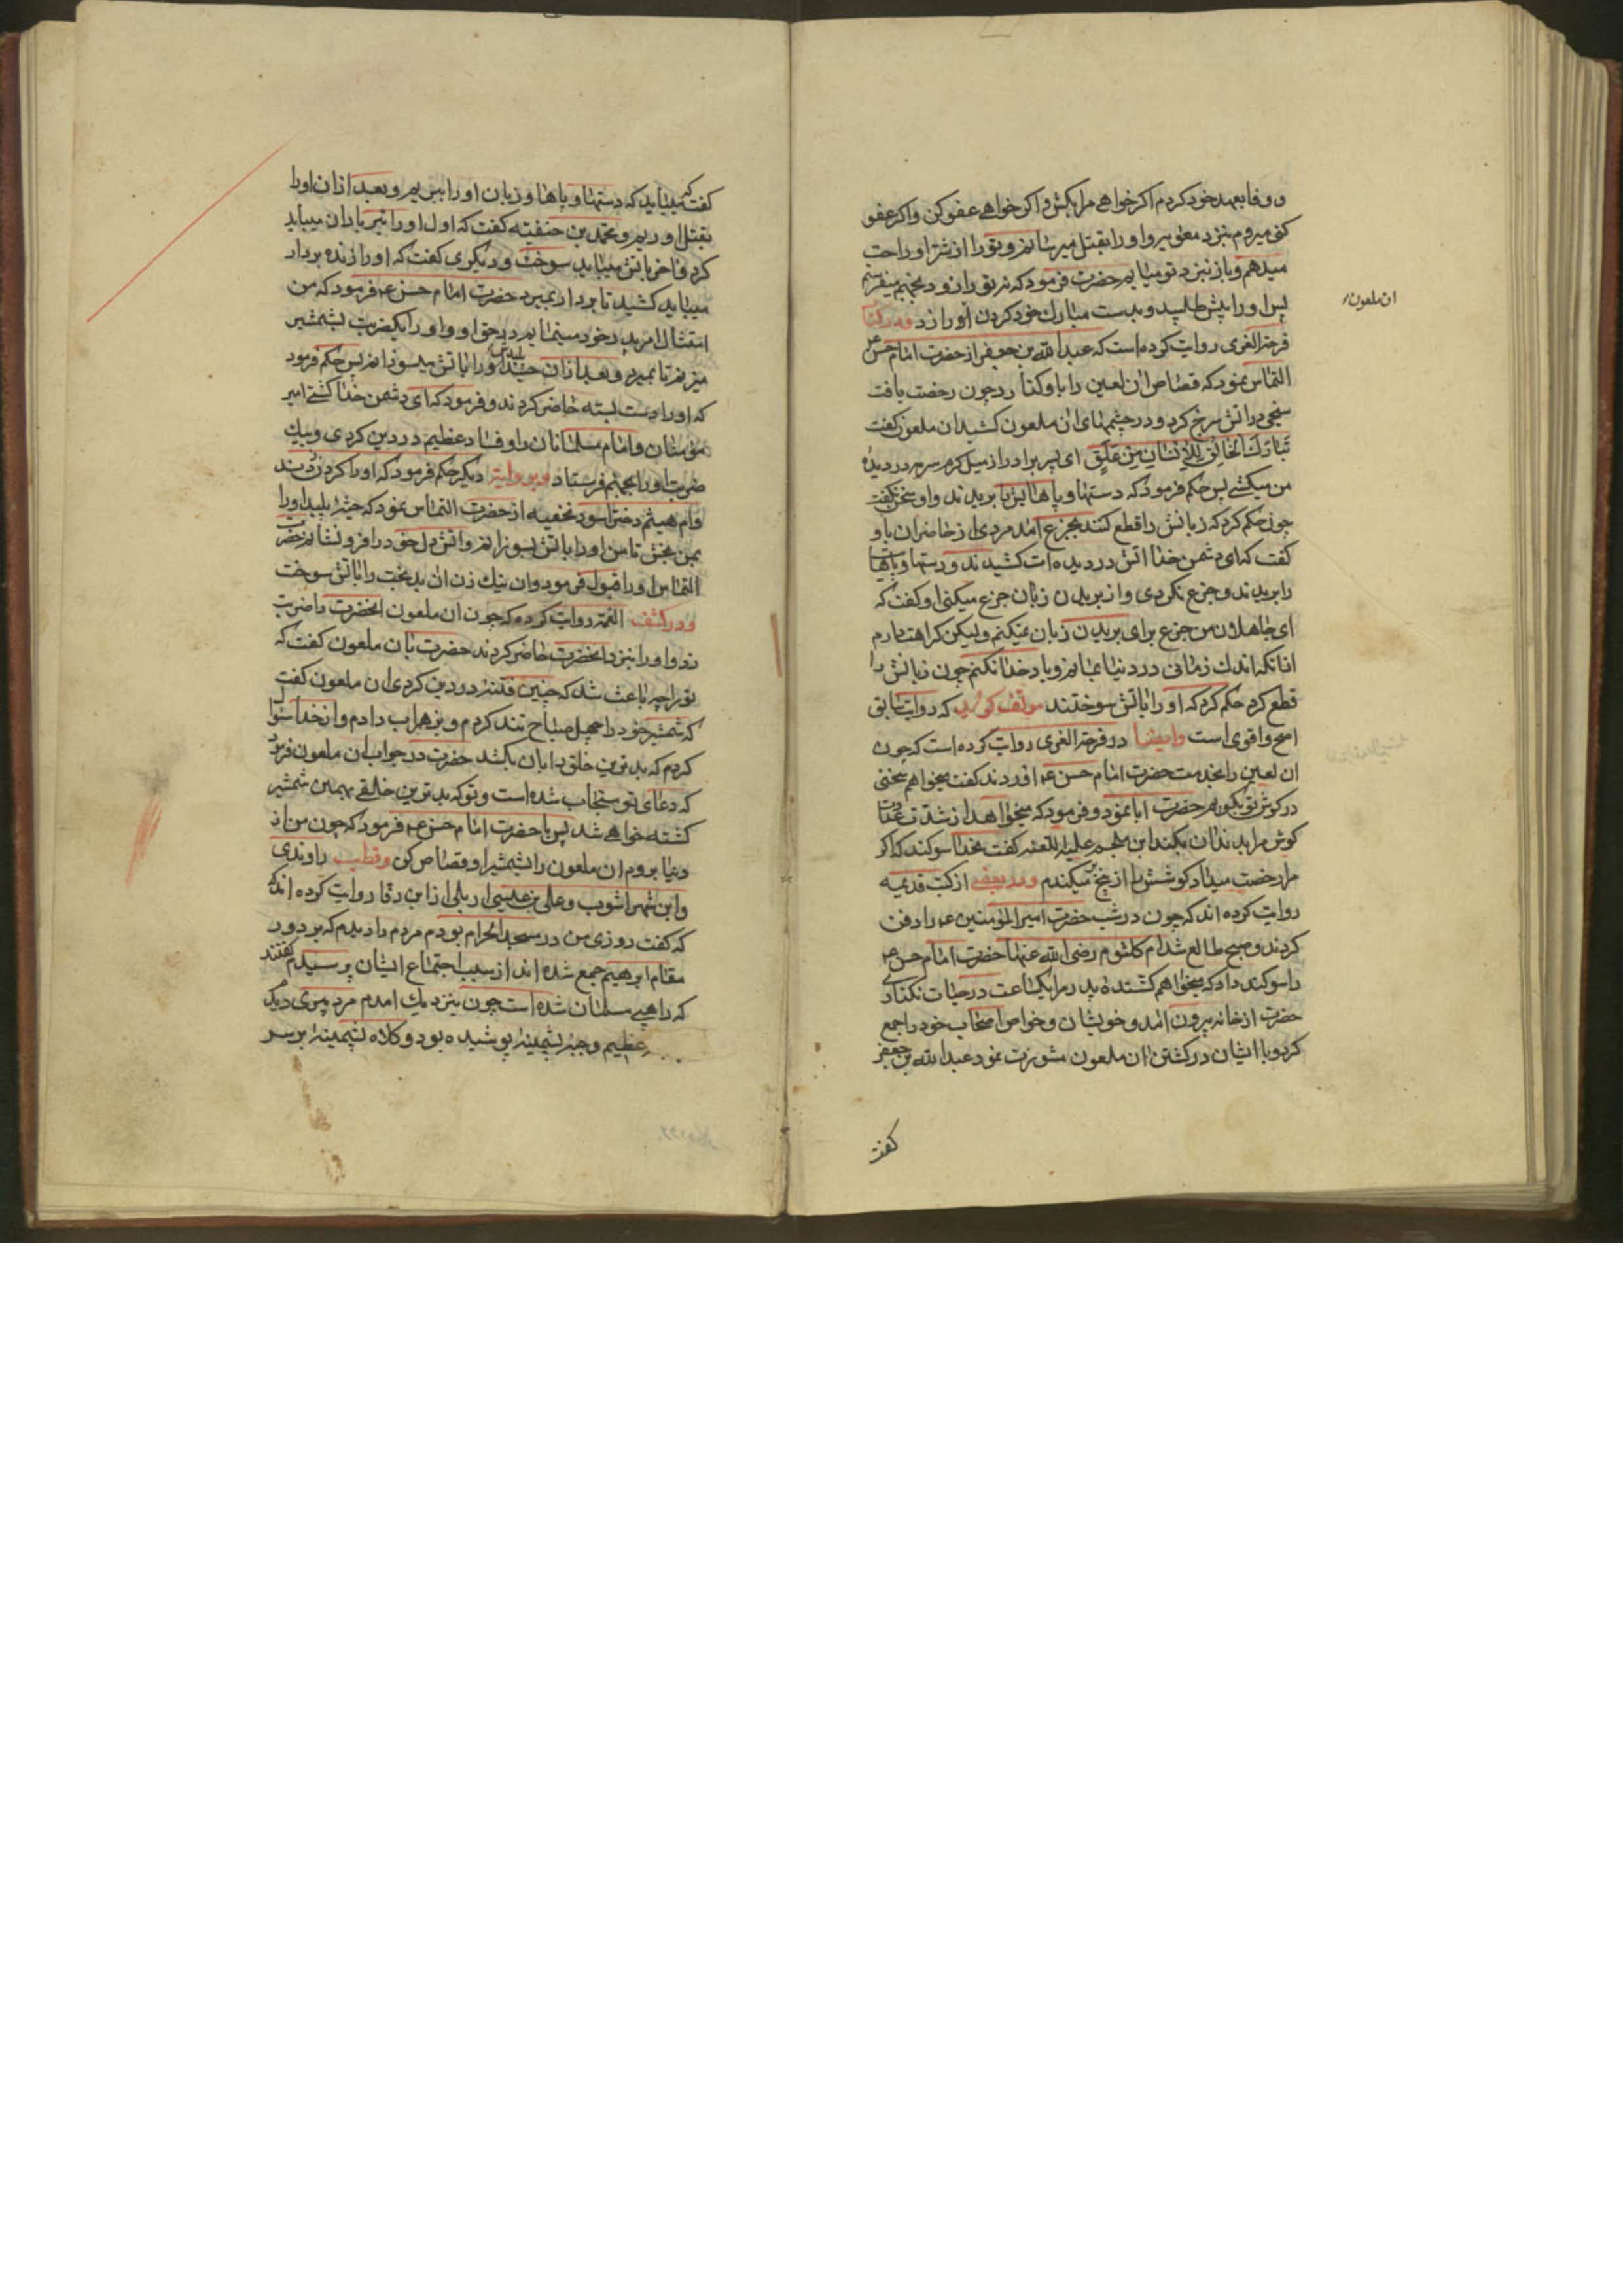 و وفا بعهد خود کردم اکر خواهی مرا بکش و اکر خواهی عفو کن و اکر عفو
کنی میروم بنزد معویه و او را بقتل میرسانم و تو را از شر او راحت
میدهم و باز بنزد تو میایم حضرت فرمود که نه تو را زود بجهنم میفرستم
پس او را پیش طلبید و بدست مبارک خود کردن او را زد و در کتاب
فرحة الغری روایت کرده است که عبد الله بن جعفر از حضرت امام حسن ع
التماس نمود که قصاص ان لعین را باو کذارد چون رخصت یافت
سیخی در اتش سرخ کرد و در چشمهای ان ملعون کشید ان ملعون کفت
تَبارَكَ الخالِقُ لِلاِنسانِ مِن عَلَقٍ ای پسر برادر از میل کرم سرمه در دیده
من میکشی پس حکم فرمود که دستها و پاهایش را بریدند و او سخن نکفت
چون حکم کرد که زبانش را قطع کنند بجزع امد مردی از حاضران باو
کفت که ای دشمن خدا اتش در دیده ات کشیدند و دستها و پاهات
را بریدند و جزع نکردی و از بریدن زبان جزع میکنی او کفت که
ای جاهلان من جزع برای بریدن زبان نمیکنم ولیکن کراهت دارم
از انکه اندک زمانی در دنیا بمانم و یاد خدا نکنم چون زبانش را
قطع کرد حکم کرد که او را باتش سوختند مولف کوید که روایت سابق
اصح و اقوی است وایضا در فرحة الغری روایت کرده است که چون
ان لعین را بخدمت حضرت امام حسن ع اوردند کفت میخواهم سخنی
در کوش تو بکویم حضرت ابا نمود و فرمود که میخواهد از شدت عداوت
کوش مرا بدندان بکند ابن ملجم علیه اللعنه کفت بخدا سوکند که اکر
مرا رخصت میداد کوشش را از بیخ میکندم و در بعضی از کتب قدیمه
روایت کرده اند که چون در شب حضرت امیر المؤمنین ع را دفن
کردند و صبح طالع شد ام کلثوم رضی الله عنها حضرت امام حسن ع
را سوکند داد که میخواهم کشنده پدر مرا یکساعت در حیات نکذاری
حضرت از خانه بیرون امد و خویشان و خواص اصحاب خود را جمع
کرد و با ایشان در کشتن ان ملعون مشورت نمود عبد الله بن جعفر
کفت
ان ملعون
کفت که میباید که دستها و پاها و زبان او را ببریم و بعد از ان او را
بقتل اوریم و محمد بن حنفیه کفت که اول او را تیر باران میباید
کرد و اخر باتش میباید سوخت و دیکری کفت که او را زنده بردار
میباید کشید تا بردار بمیرد حضرت امام حسن ع فرمود که من
امتثال امر پدر خود مینمایم در حق او و او را یکضربت بشمشیر
میزنم تا بمیرد و بعد از ان جسد پلید او را باتش میسوزانم پس حکم فرمود
که او را دست بسته حاضر کردند و فرمود که ای دشمن خدا کشتی امیر
مؤمنان و امام مسلمانان را و فساد عظیم در دین کردی و بیک
ضربت او را بجهنم فرستاد و بروایت دیکر حکم فرمود که او را کردن زدند
و ام هیثم دختر اسود نخعیه از حضرت التماس نمود که جیفه پلید او را
بمن بخش تا من او را باتش بسوزانم و اتش دل خود را فرو نشانم حضرت
التماس او را قبول فرمود و ان نیک زن ان بدبخت را باتش سوخت
و در کشف الغمه روایت کرده که چون ان ملعون انحضرت را ضربت
زد و او را بنزد انحضرت حاضر کردند حضرت بان ملعون کفت که
تو را چه باعث شد که چنین فتنه در دین کردی ان ملعون کفت
که شمشیر خود را چهل صباح تند کردم و بزهر اب دادم و از خدا سؤال
کردم که بدترین خلق را بان بکشد حضرت در جواب ان ملعون فرمود
که دعای تو مستجاب شده است و تو که بدترین خلقی بهمین شمشیر
کشته خواهی شد پس با حضرت امام حسن ع فرمود که چون من از
دنیا بروم ان ملعون را بشمشیر او قصاص کن و قطب راوندی
و ابن شهر اشوب و علی بن عیسی اربلی از ابن رقا روایت کرده اند که
که کفت روزی من در مسجد الحرام بودم مردم را دیدم که بر دور
مقام ابرهیم جمع شده اند از سبب اجتماع ایشان پرسیدم کفتند
که راهبی مسلمان شده است چون بنزدیک امدم مرد پیری دیدم
عظیم و جبه پشمینه پوشیده بود و کلاه پشمینه بر سر